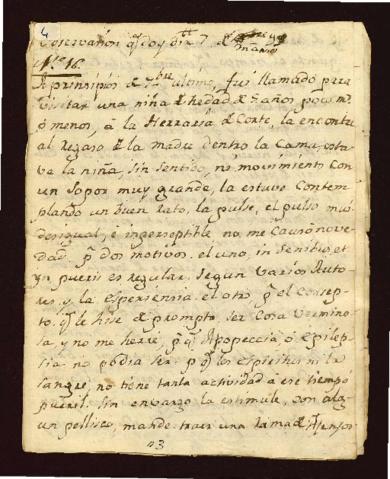 4
Observation q doy oy 7 de
Marzo
N.º 16.
A prinsipios de 7bre ultimo, fui llamado para
visitar una niña de hedad de 5 años poco mas
ó menos, á la Herraria de Corte, la encontre
al regaso de la madre dentro la Cama, esta
va la niña, sin sentido, ni movimiento con
un sopor muy grande, la estuve Contem
plando un buen rato, la pulse, el pulso mui
desigual, é inperseptible no me Causó no
vedad, p.r dos motivos. el uno, in senibus et
in pueris es regular, segun varios Auto
res, y la Esperiensia el otro p.r el Consep
to. q.e le hise de prompto ser Cosa Vermino
sa, y no me herré, p.r q.e Apopeccia ó Epilep
sia no podia ser p.r q.e los Espiritus ni la
sangre, no tiene tanta actividad a ese tiempo
pueril. Sin envargo la estimule, con alg
un pellisco, mande traer una lama de
43